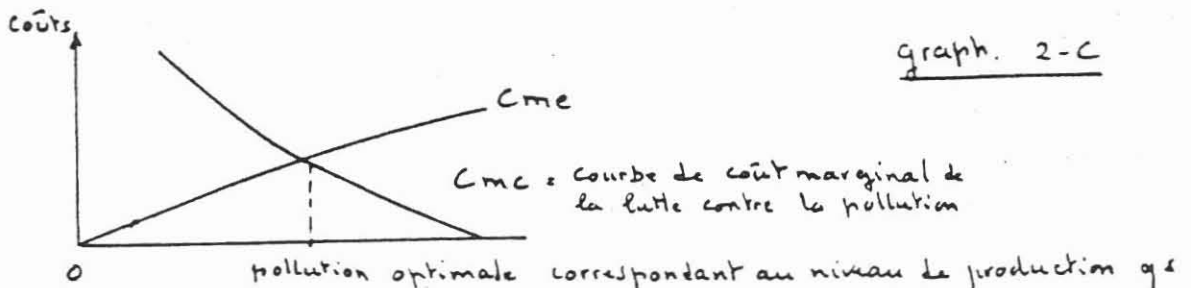 coûts
graph. 2-C
Cme
Cmc = courbe de coût marginal de
la lutte contre la pollution
O
pollution optimale correspondant au niveau de production qs